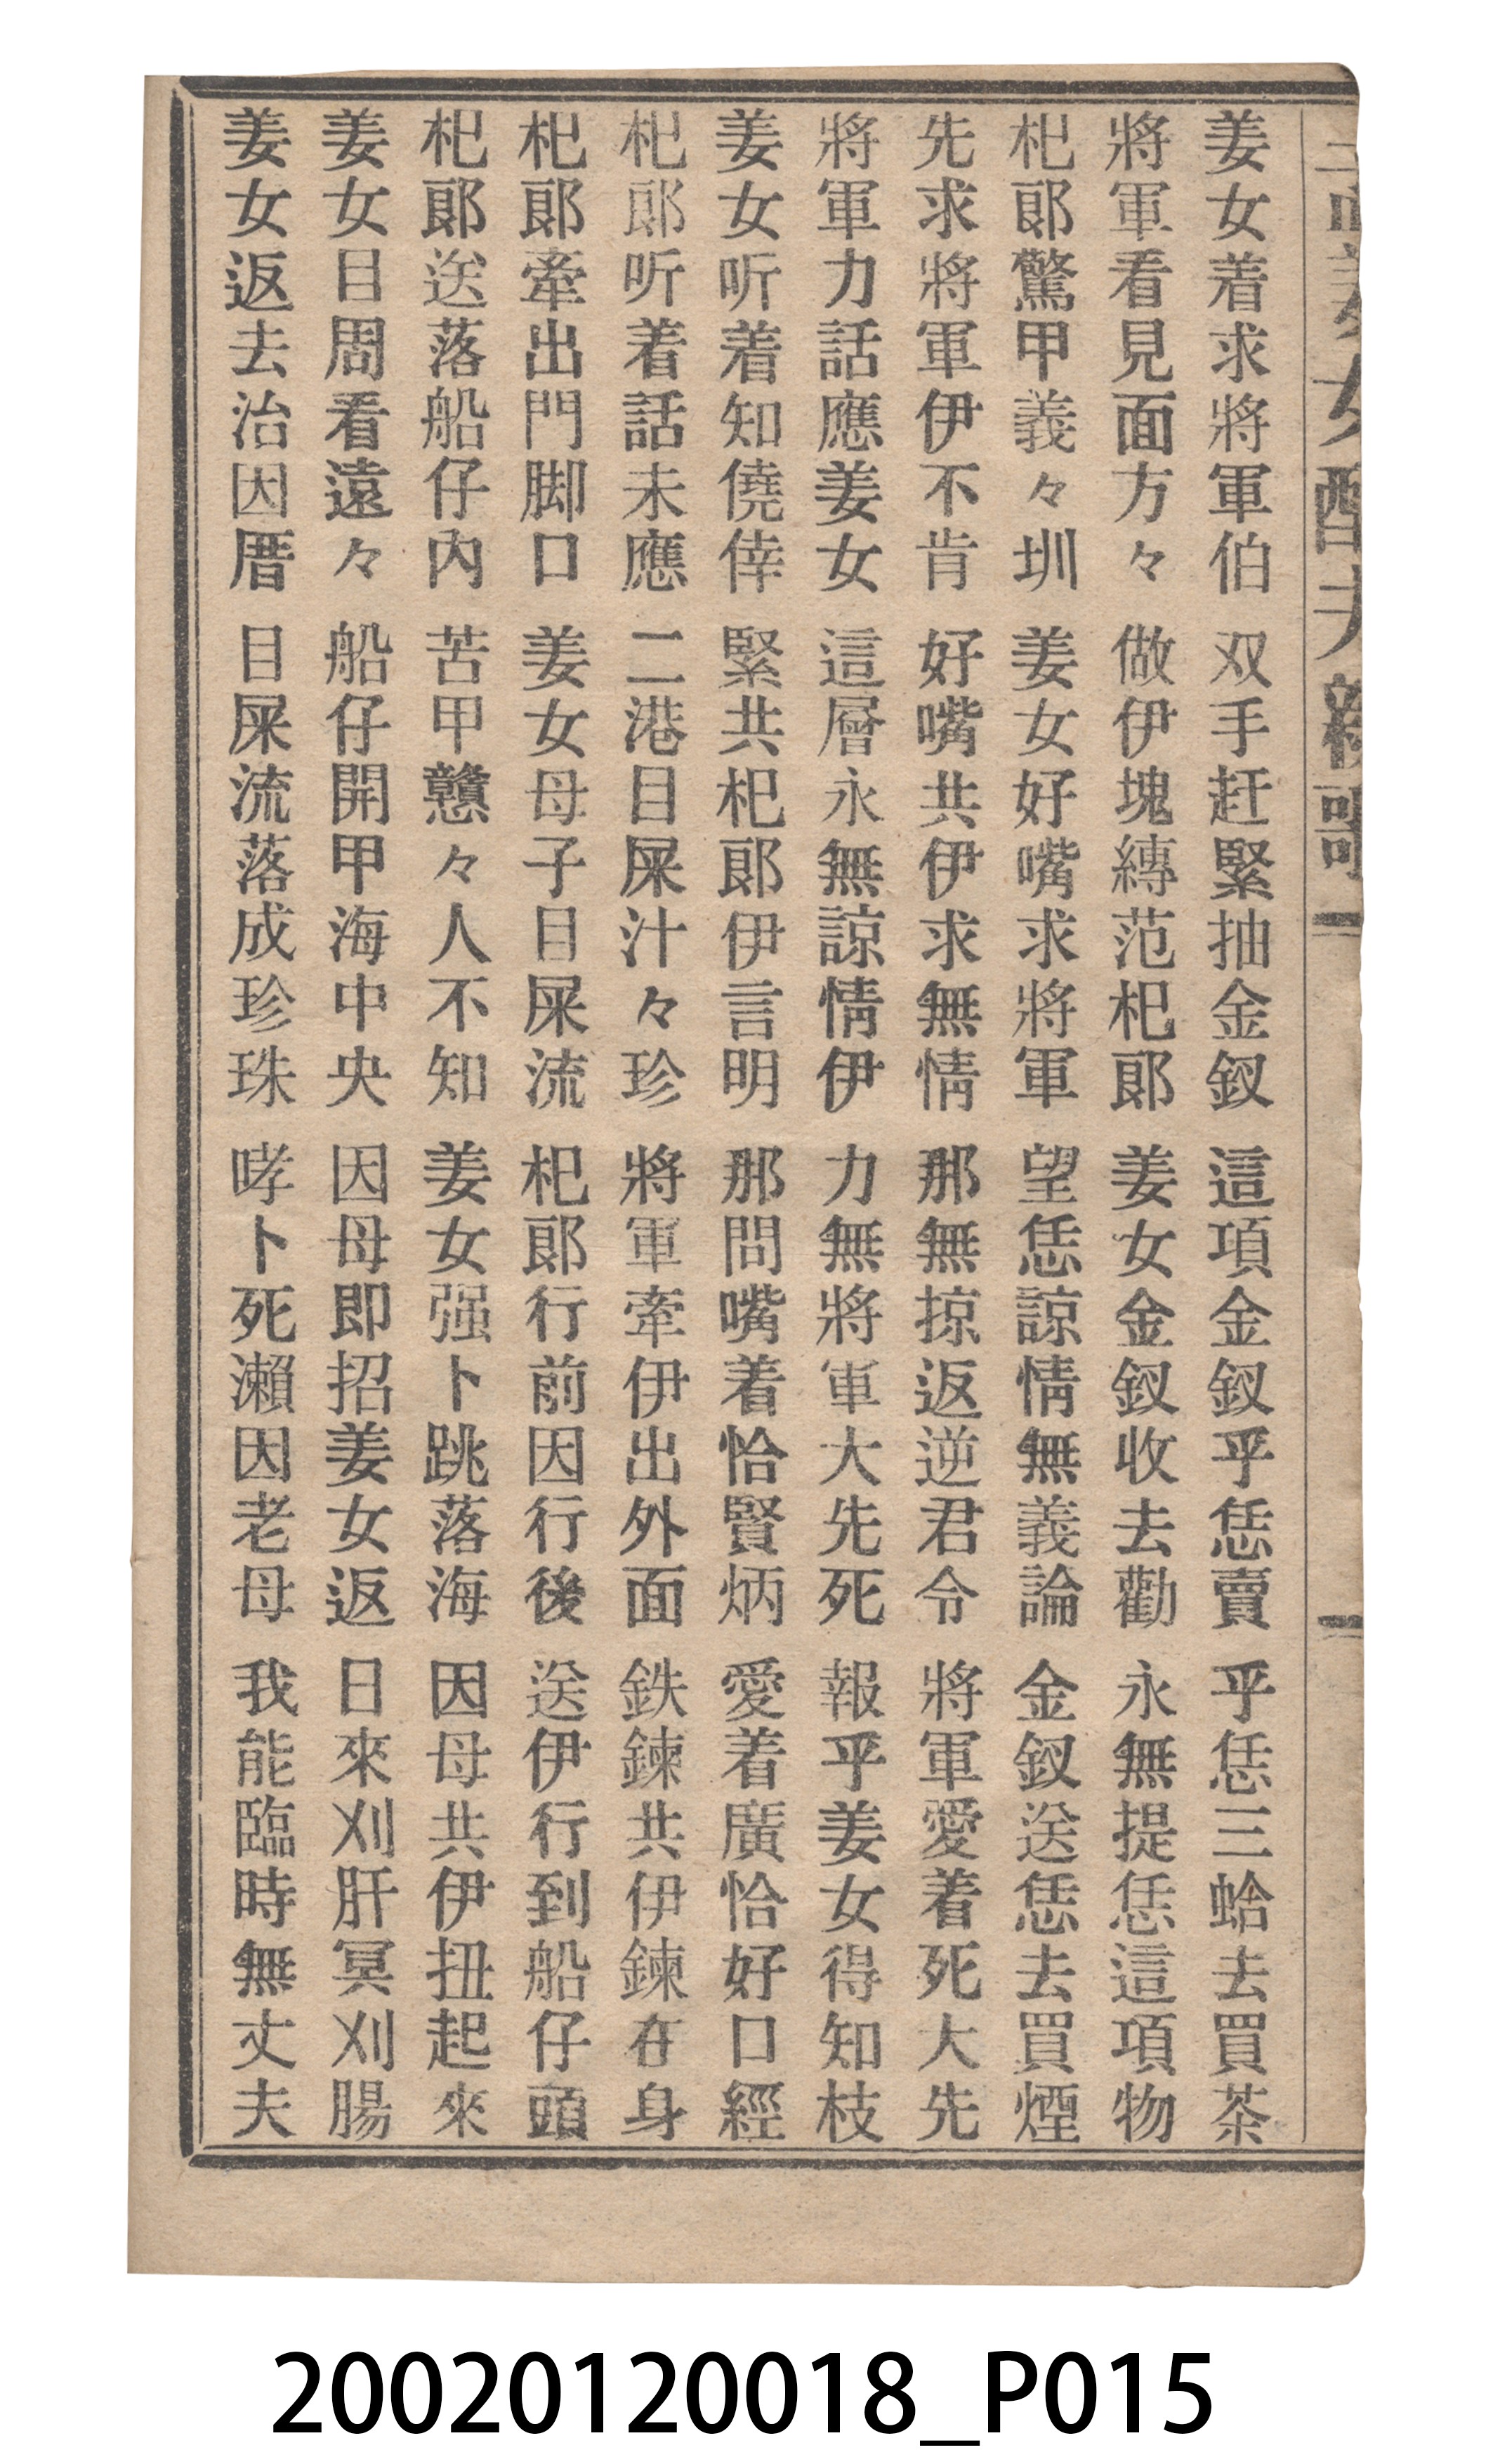 姜女配夫新歌
姜女着求將軍伯　双手赶緊抽金釵　這項金釵乎恁賣　乎恁三蛤去買茶
將軍看見面方々　做伊塊縛范杞郎　姜女金釵收去勸　永無提恁這項物
杞郎驚甲義々圳　姜女好嘴求將軍　望恁諒情無義論　金釵送恁去買煙
先求將軍伊不肯　好嘴共伊求無情　那無掠返逆君令　將軍愛着死大先
將軍力話應姜女　這層永無諒情伊　力無將軍大先死　報乎姜女得知枝
姜女听着知僥倖　緊共杞郎伊言明　那問嘴着恰賢炳　愛着廣恰好口經
杞郎听着話未應　二港目屎汁々珍　將軍牽伊出外面　鉄鍊共伊鍊在身
杞郎牽出門脚口　姜女母子目屎流　杞郎行前因行後　送伊行到船仔頭
杞郎送落船仔內　苦甲戇々人不知　姜女强卜跳落海　因母共伊扭起來
姜女目周看遠々　船仔開甲海中央　因母即招姜女返　日來刈肝冥刈腸
姜女返去治因厝　目屎流落成珍珠　哮卜死瀨因老母　我能臨時無丈夫
20020120018_P015